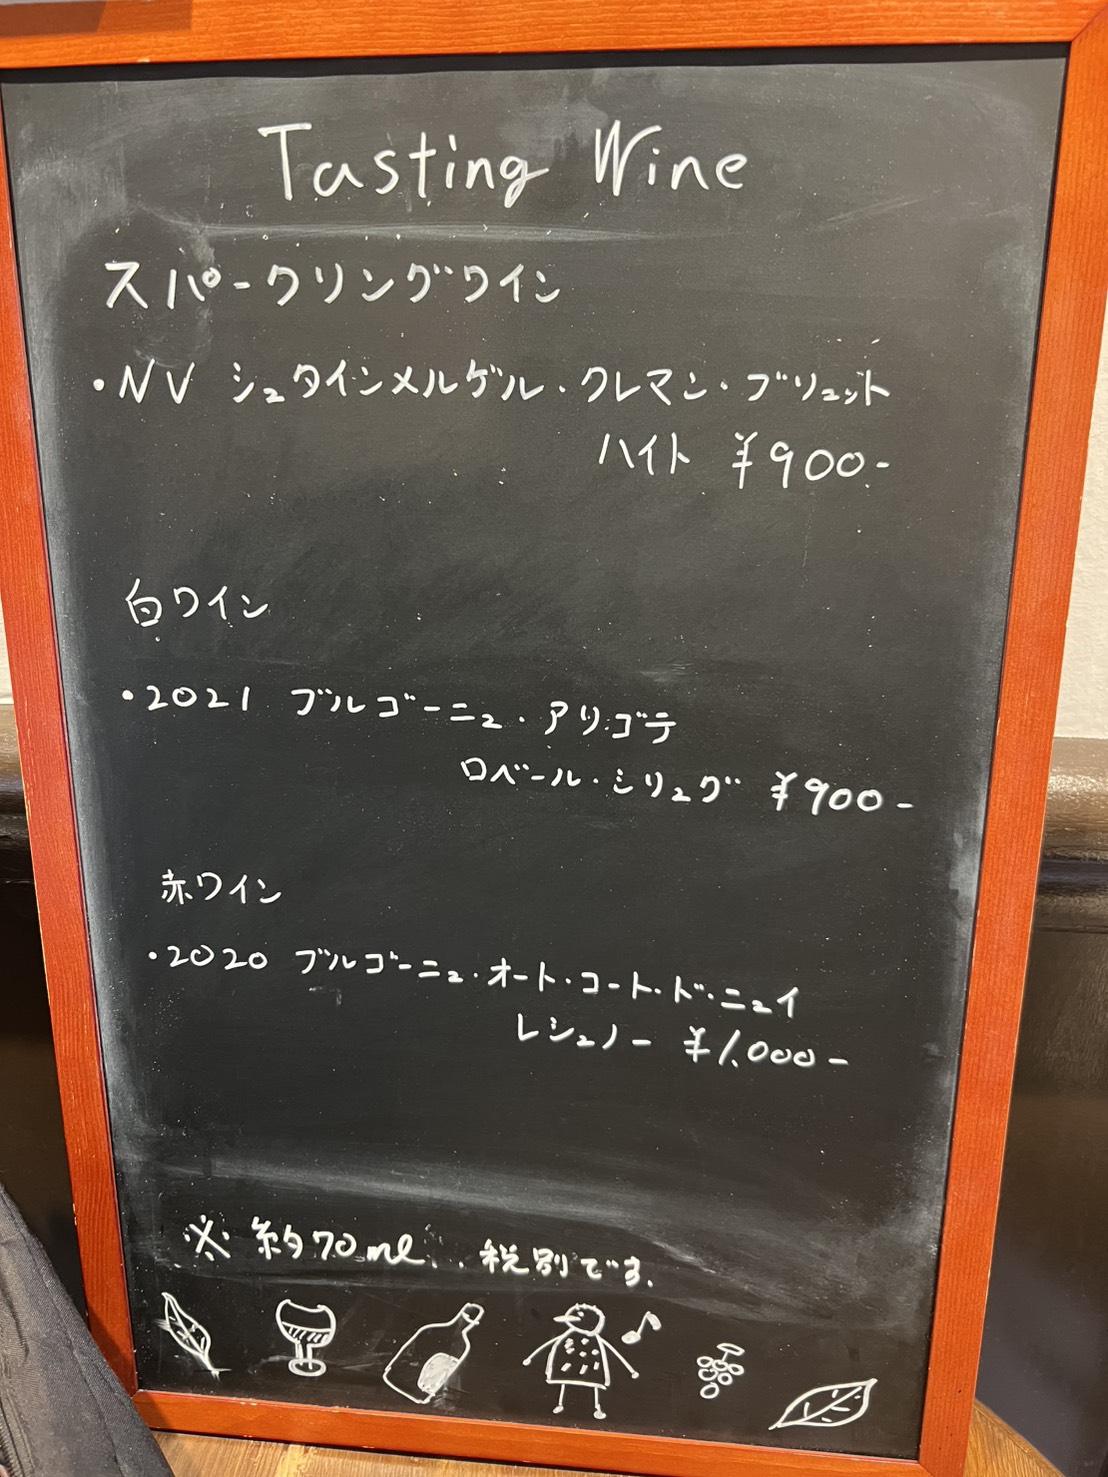 Tasting Wine
スパークリングワイン
・NV シュタインメルゲル・クレマン・ブリュット
ハイト ¥900-
白ワイン
・2021 ブルゴーニュ・アリゴテ
ロベール・シリュグ ¥900-
赤ワイン
・2020 ブルゴーニュ・オート・コート・ド・ニュイ
レシュノー ¥1,000-
※ 約70ml、税別です。